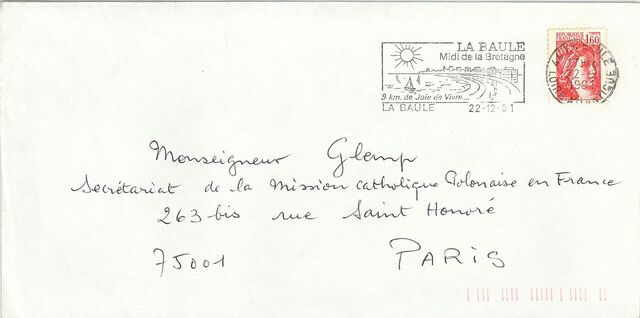 LA BAULE
Midi de la Bretagne
9 km. de Joie de Vivre...
LA BAULE 22-12-81
1,60
Monseigneur Glemp
Secrétariat de la Mission Catholique Polonaise en France
263 bis rue Saint Honoré
75001 PARIS